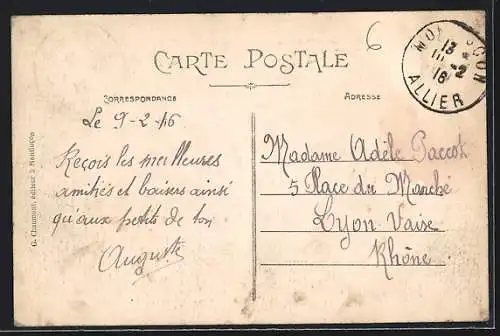 6
CARTE POSTALE
CORRESPONDANCE
ADRESSE
Le 9-2-16
Reçois les meilleures
amitiés et baisers ainsi
qu'aux petits de ton
Auguste
Madame Adèle Paccot
5 Place du Marché
Lyon Vaise
Rhône
13
-2
16
ALLIER
G. Chaumont, éditeur à Montluçon